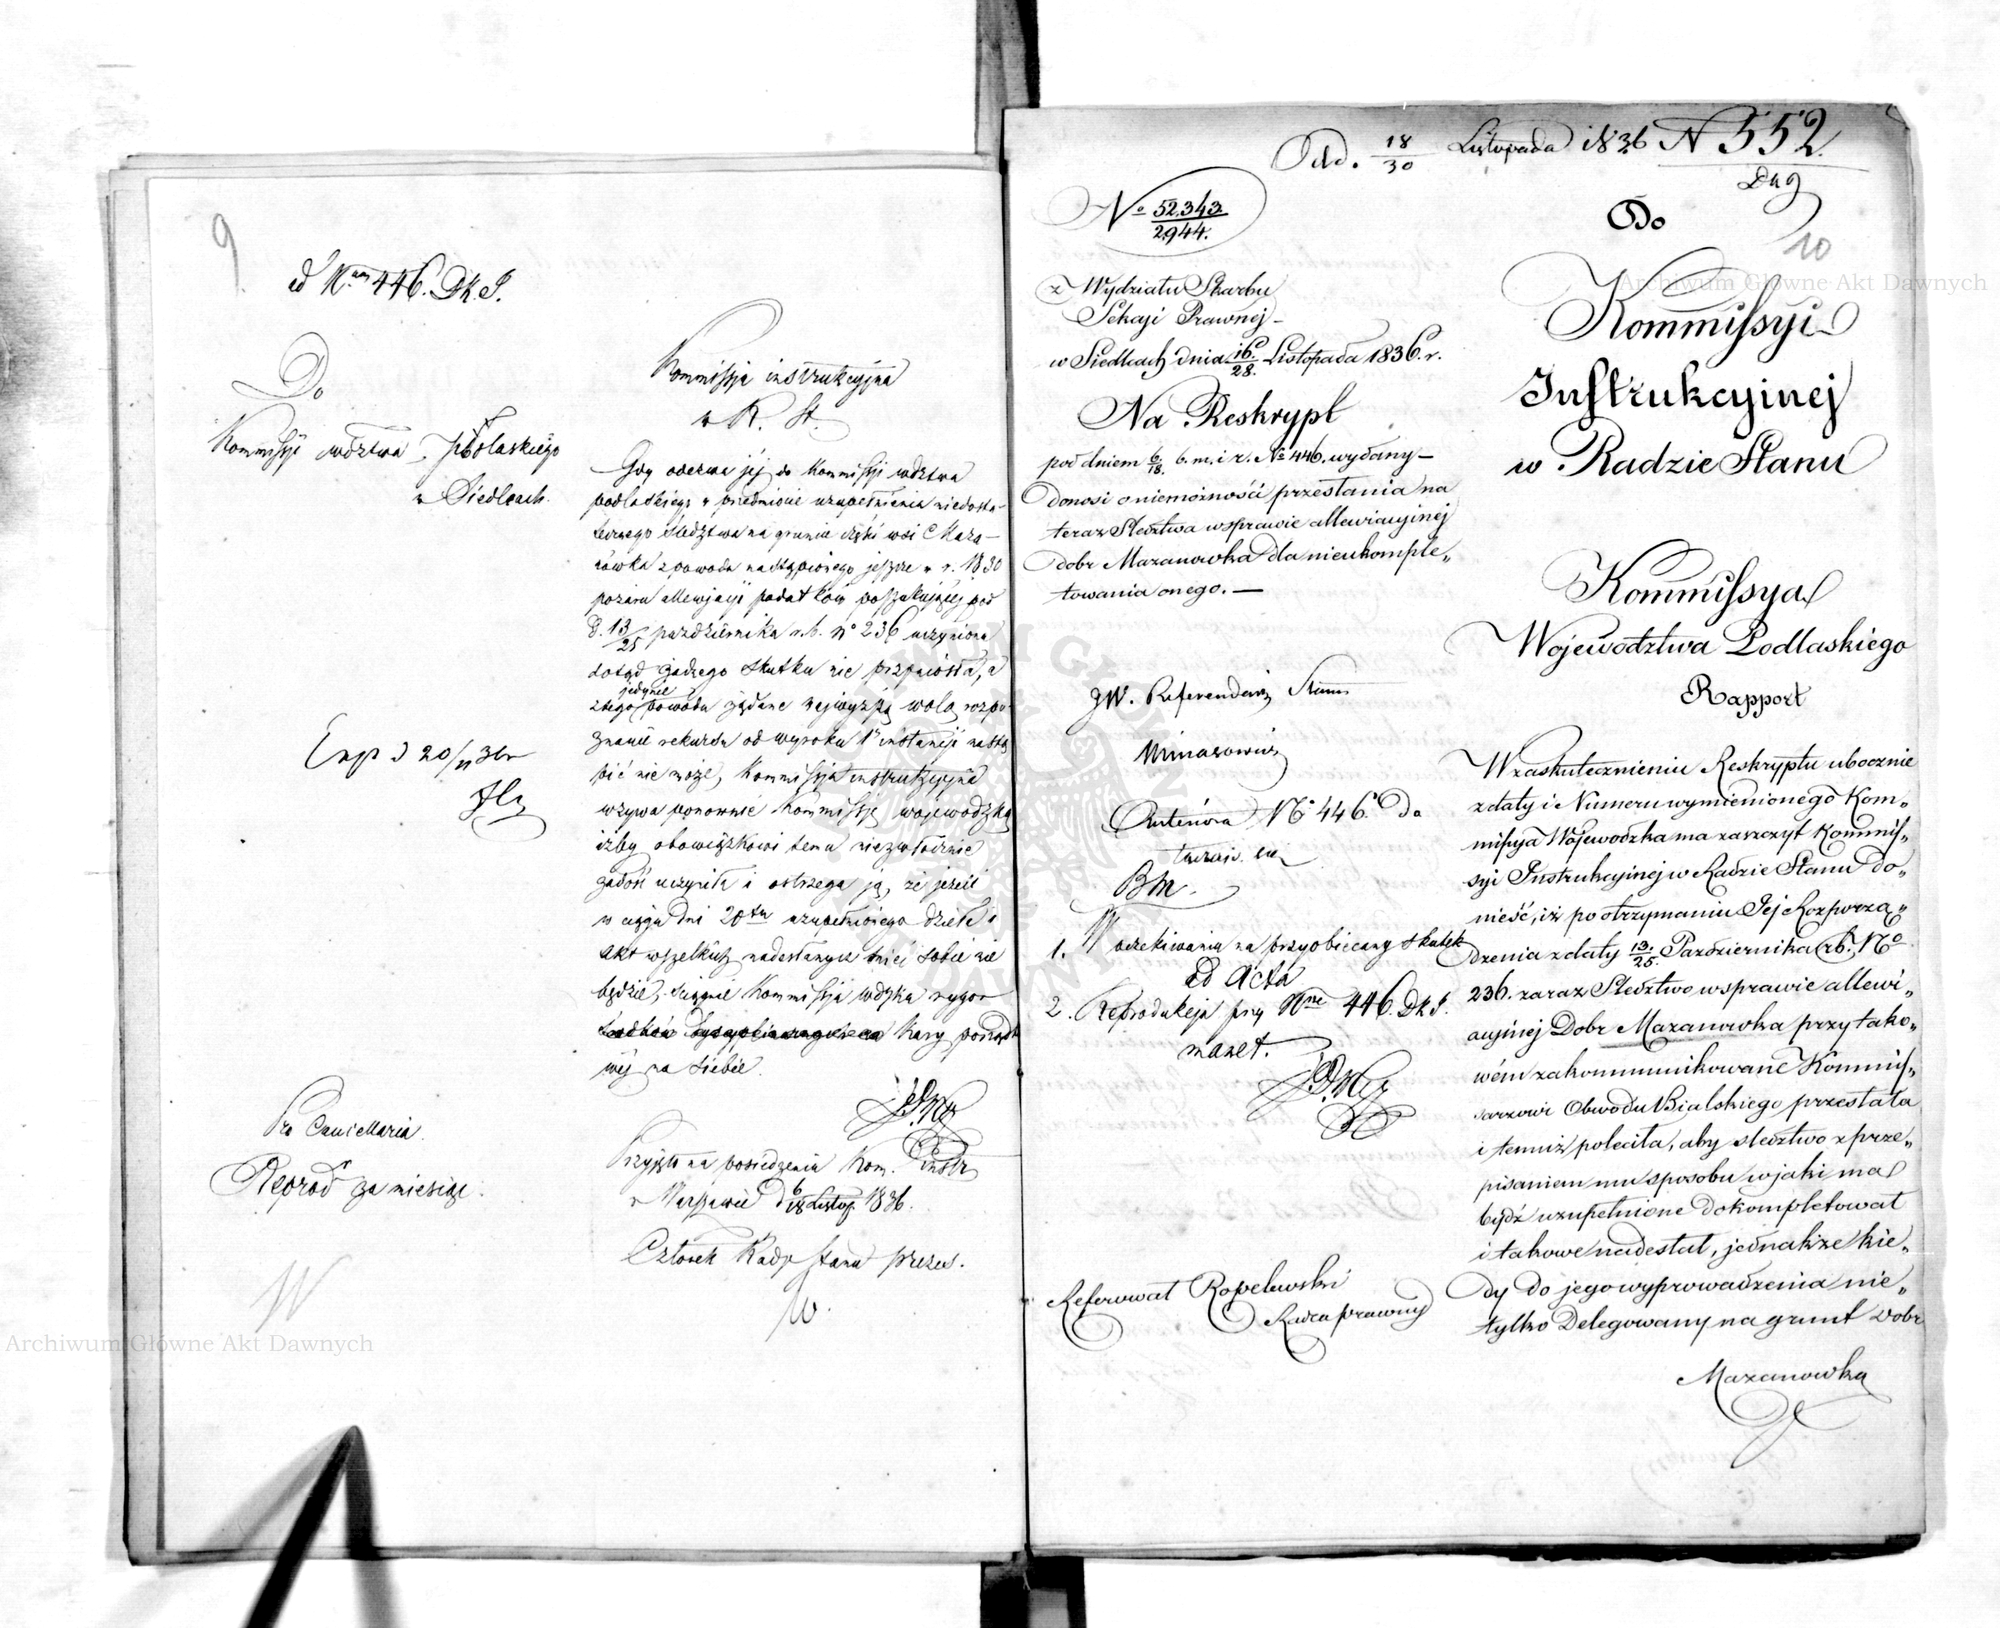 9
ad Nrum 446. Dk. I.
Do
Kommissyi wdztwa Podlaskiego
w Siedlcach.
Exp d 20/11 36 r
Pro Cancellaria.
Reprod. za miesiąc.
Kommissja instrukcyjna
w R. St.
Gdy odezwa jéj do Kommissji wdztwa
podlaskiego w przedmiocie uzupełnienia niedosta-
tecznego śledztwa na gruncie części wsi Maza-
nówka z powodu nastąpionego jeszcze w r. 1830
pożaru allewjacyi podatków poszukującéj pod
d. 13/25 października r. b. No 236 uczyniona
dotąd żadnego skutku nie przyniosła, a
z tego jedynie powodu żądane najwyższą wolą rozpo-
znanie rekursu od wyroku 1éj instancji nastą-
pić nie może, Kommissja instrukcyjna
wzywa ponownie Kommissję wojewódzką
iżby obowiązkowi temu niezwłócznie
zadość uczyniła i ostrzega ją, że jeżeli
w ciągu dni 20tu uzupełnionego dzieła i
akt wszelkich nadesłanych mieć sobie nie
będzie, ściągnie Kommissja wdzka rygor
kary porządko-
wéj na siebie.
Przyjęto na posiedzeniu Kom. Instr
w Warszawie d 6/18 Listop. 1836.
Członek Rady Stanu prezes.
W.
Odd. 18/30 Listopada 1836 N 552
Dag
10
No 52,343/2,944.
z Wydziału Skarbu
Sekcji Prawnej
w Siedlcach dnia 16/28. Listopada 1836. r.
Na Reskrypt
pod dniem 6/18. b. m. i r. No 446. wydany
donosi o niemożności przesłania na
teraz Sledztwa w sprawie allewiacyjnej
dobr Mazanowka dla nieukomple„
towania onego. —
JW. Referendarz Stanu
Minasowicz
No 446.
1. W oczekiwaniu na przyobiecany skutek
ad Acta
2. Reprodukcja przy Nrze 446 Dk. I.
manet.
Referował Kopelewski
Radca prawny
Do
Kommissyi
Instrukcyinej
w Radzie Stanu
Kommissya
Wojewodztwa Podlaskiego
Rapport
W zaskutecznieniu Reskryptu ubocznie
z daty i Numeru wymienionego Kom„
missya Wojewodzka ma zaszczyt Kommis„
syi Instrukcyinej w Radzie Stanu do„
nieść, iż po otrzymaniu Jej Rozporzą„
dzenia z daty 13/25. Pazdziernika r.b. No
236. zaraz Sledztwo w sprawie allewi„
acyinej Dobr Mazanowka przy tako„
wém zakommunikowane Kommis„
sarzowi Obwodu Bialskiego przesłała
i temuż poleciła, aby sledztwo z prze„
pisaniem mu sposobu w jaki ma
bydź uzupełnione dokompletował
i takowe nadesłał, jednakże kie„
dy do jego wyprowadzenia nie„
tylko Delegowany na grunt Dobr
Mazanowka
Archiwum Główne Akt Dawnych
Archiwum Główne Akt Dawnych